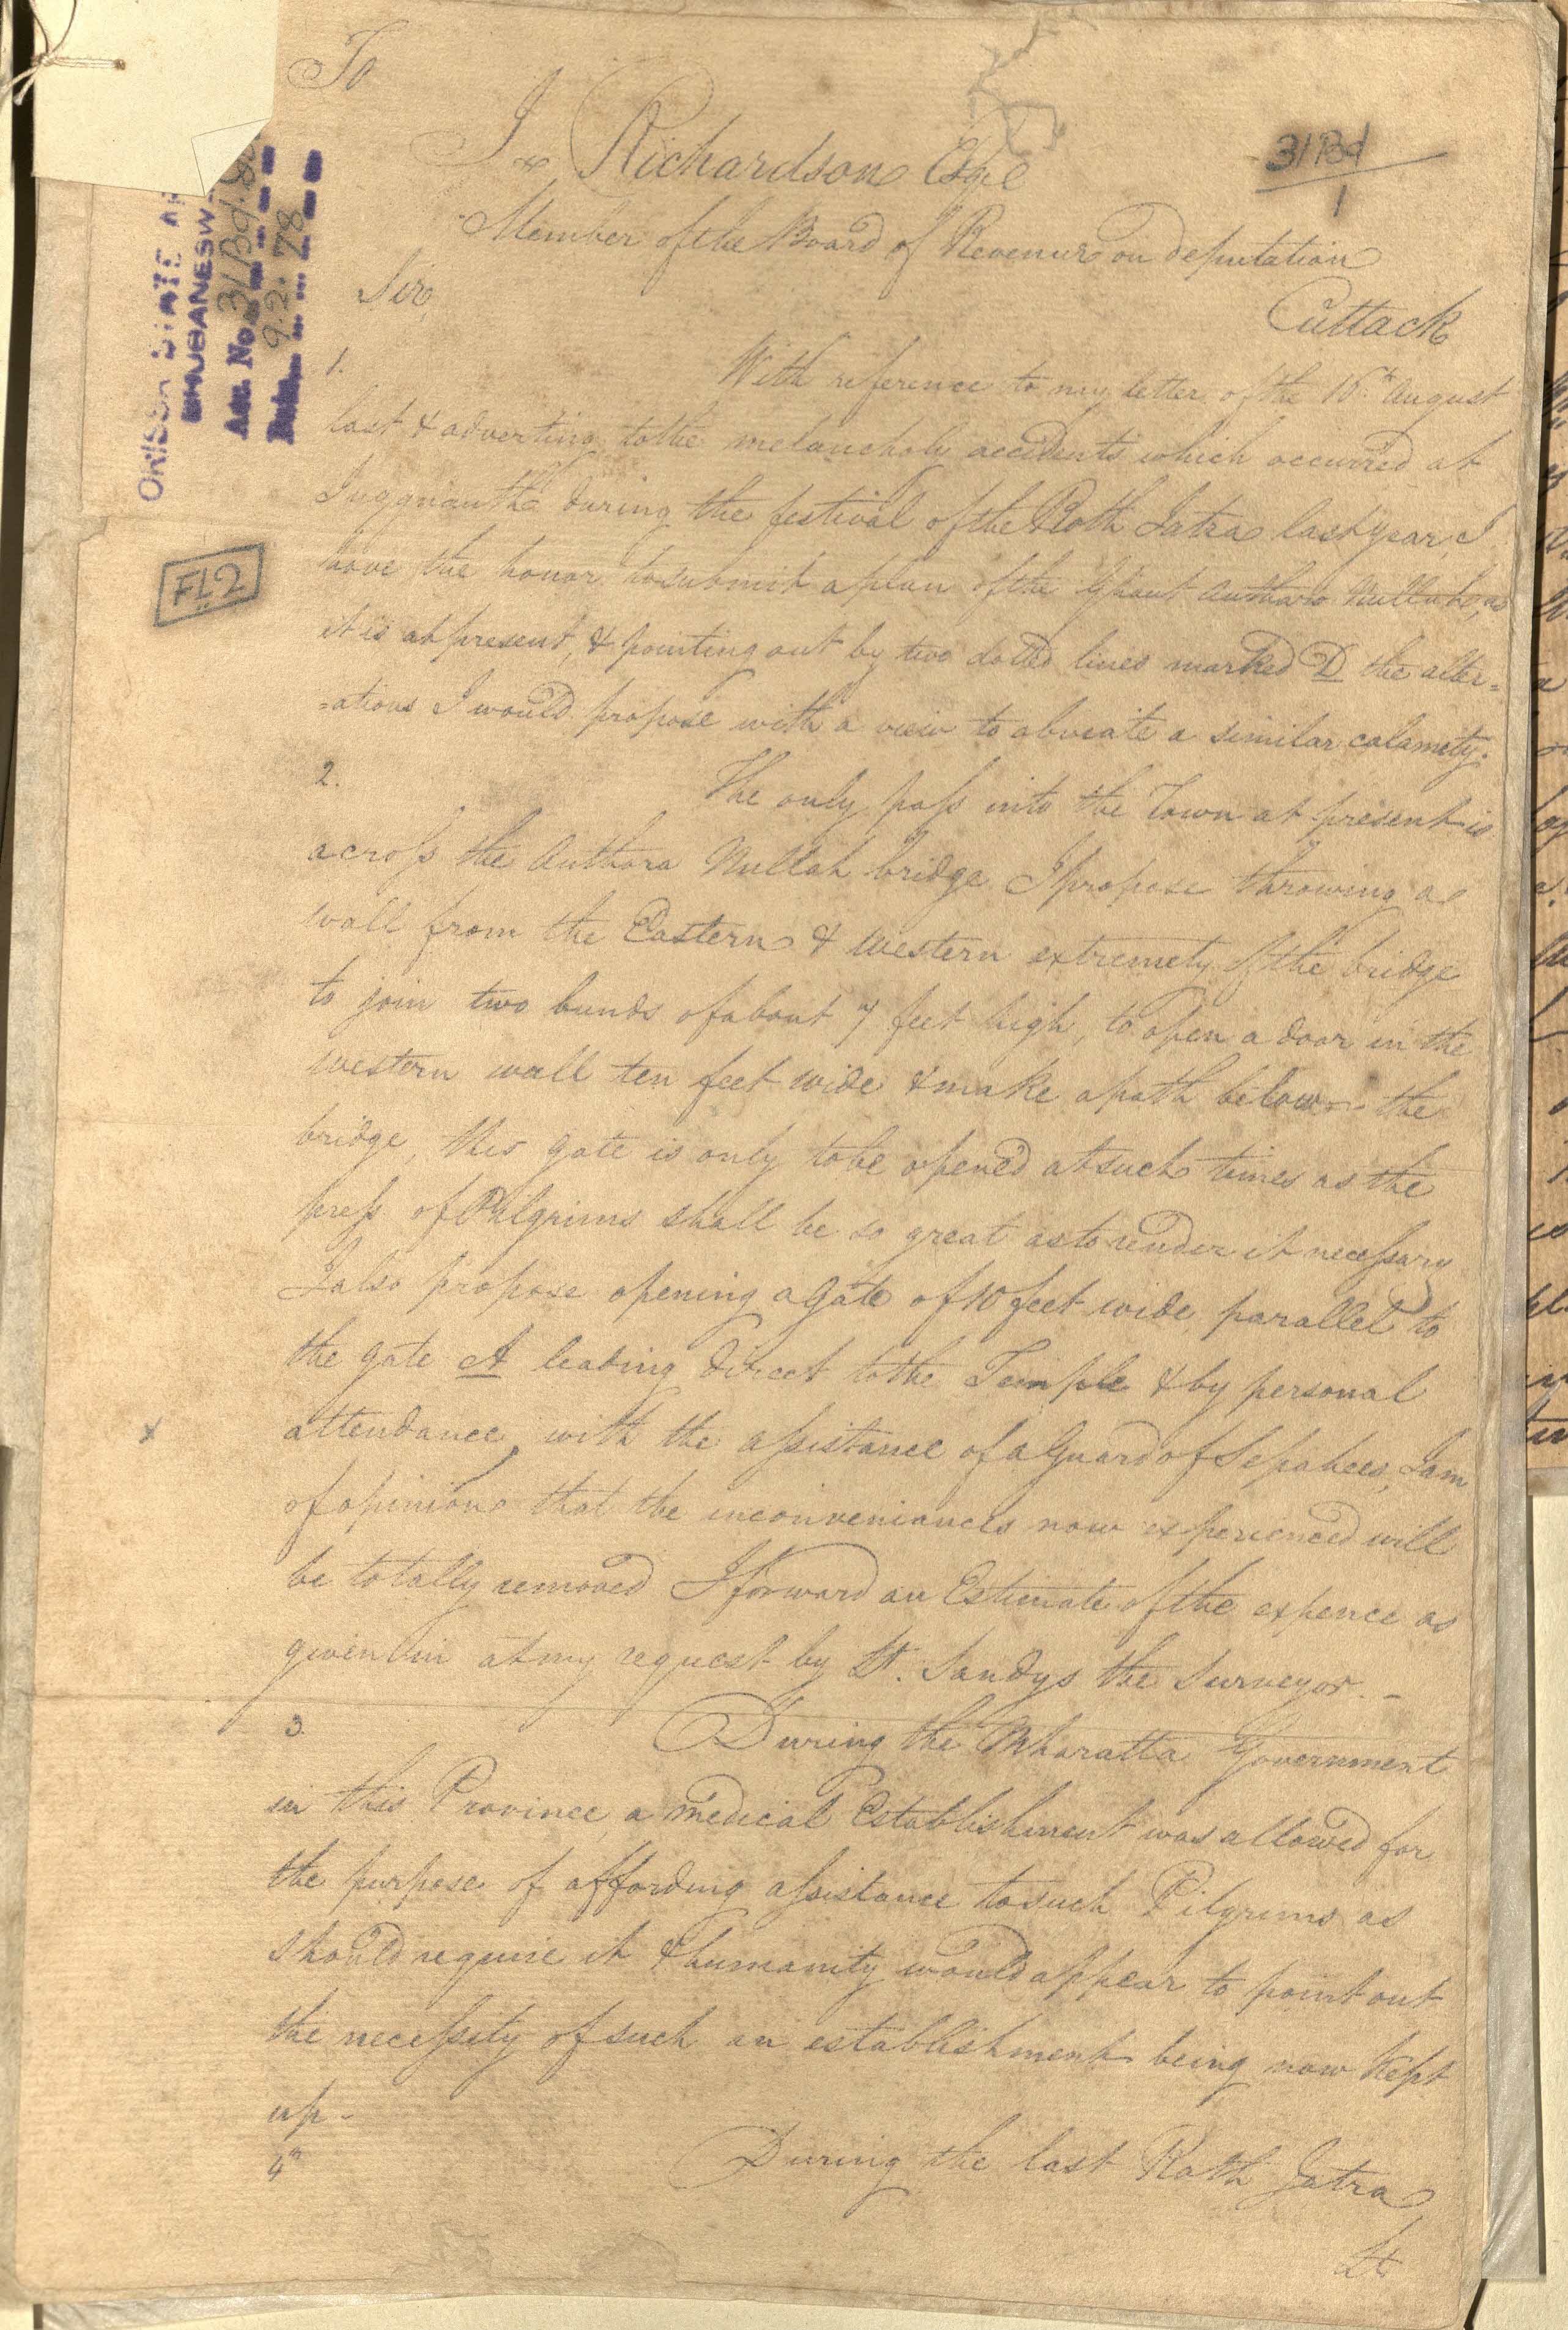 To
J Richardson Esqre
31 Bd
1
Member of the Board of Revenue on deputation
Cuttack
Sir,
ORISSA STATE
BHUBANESW
Acc. No 31 Bd.
Date 9.2.78
FL2
1. With reference to my letter of the 16th August
last & adverting to the melancholy accidents which occurred at
Juggnauth during the festival of the Roth Jatra last year, I
have the honor to submit a plan of the Ghaut Authara Nullah, as
it is at present, & pointing out by two dotted lines marked D the alter=
=ations I would propose with a view to obviate a similar calamety.
2. The only pass into the Town at present is
across the Authara Nullah bridge I propose throwing a
wall from the Eastern & Western extremety of the bridge
to join two bunds of about 7 feet high, to open a door in the
western wall ten feet wide & make a path below the
bridge, this gate is only to be opened at such times as the
press of Pilgrims shall be so great as to render it necessary
I also propose opening a Gate of 10 feet wide parallel to
the gate A leading direct to the Temple & by personal
attendance with the assistance of a Guard of Sepahees, I am
of opinion that the inconveniances now experienced will
be totally removed I forward an Estimate of the expence as
given in at my request by Lt. Sandys the Surveyor. -
3. During the Mharatta Government
in this Province a medical Establishment was allowed for
the purpose of affording assistance to such Pilgrims as
should require it & humanity would appear to point out
the necessity of such an establishment being now kept
up -
4th During the last Rath Jatra
Lt